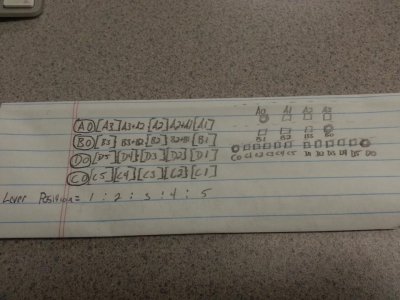 A0 [A3] A3+A2 [A2] A2+A1 [A1]
B0 [B3] B3+B2 [B2] B2+B1 [B1]
D0 [D5] [D4] [D3] [D2] [D1]
C0 [C5] [C4] [C3] [C2] [C1]
Lever Position = 1 : 2 : 3 : 4 : 5
A0 A1 A2 A3
B1 B2 B3 B0
C0 C1 C2 C3 C4 C5 D1 D2 D3 D4 D5 D0